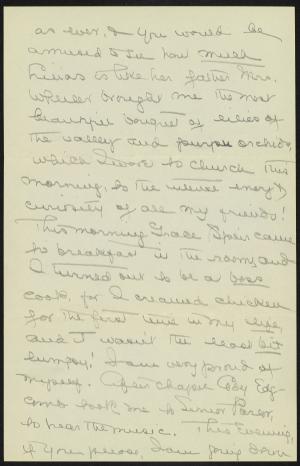 as ever, & you would be
amused to see how much
Lilias is like her father. Mrs.
Wheeler brought me the most
beautiful bouquet of lilies of
the valley and purple orchids,
which I wore to church this
morning, to the menace envy &
curiosity of all my friends!
This morning Grace Speir came
to breakfast in the room, and
I turned out to be a boss
cook, for I creamed chicken
for the first time in my life,
and it wasn't the least bit
lumpy! I am very proud of
myself. After chapel Coby Edg-
comb took me to Senior Parlor,
to hear the music. This evening,
if you please, I am going down